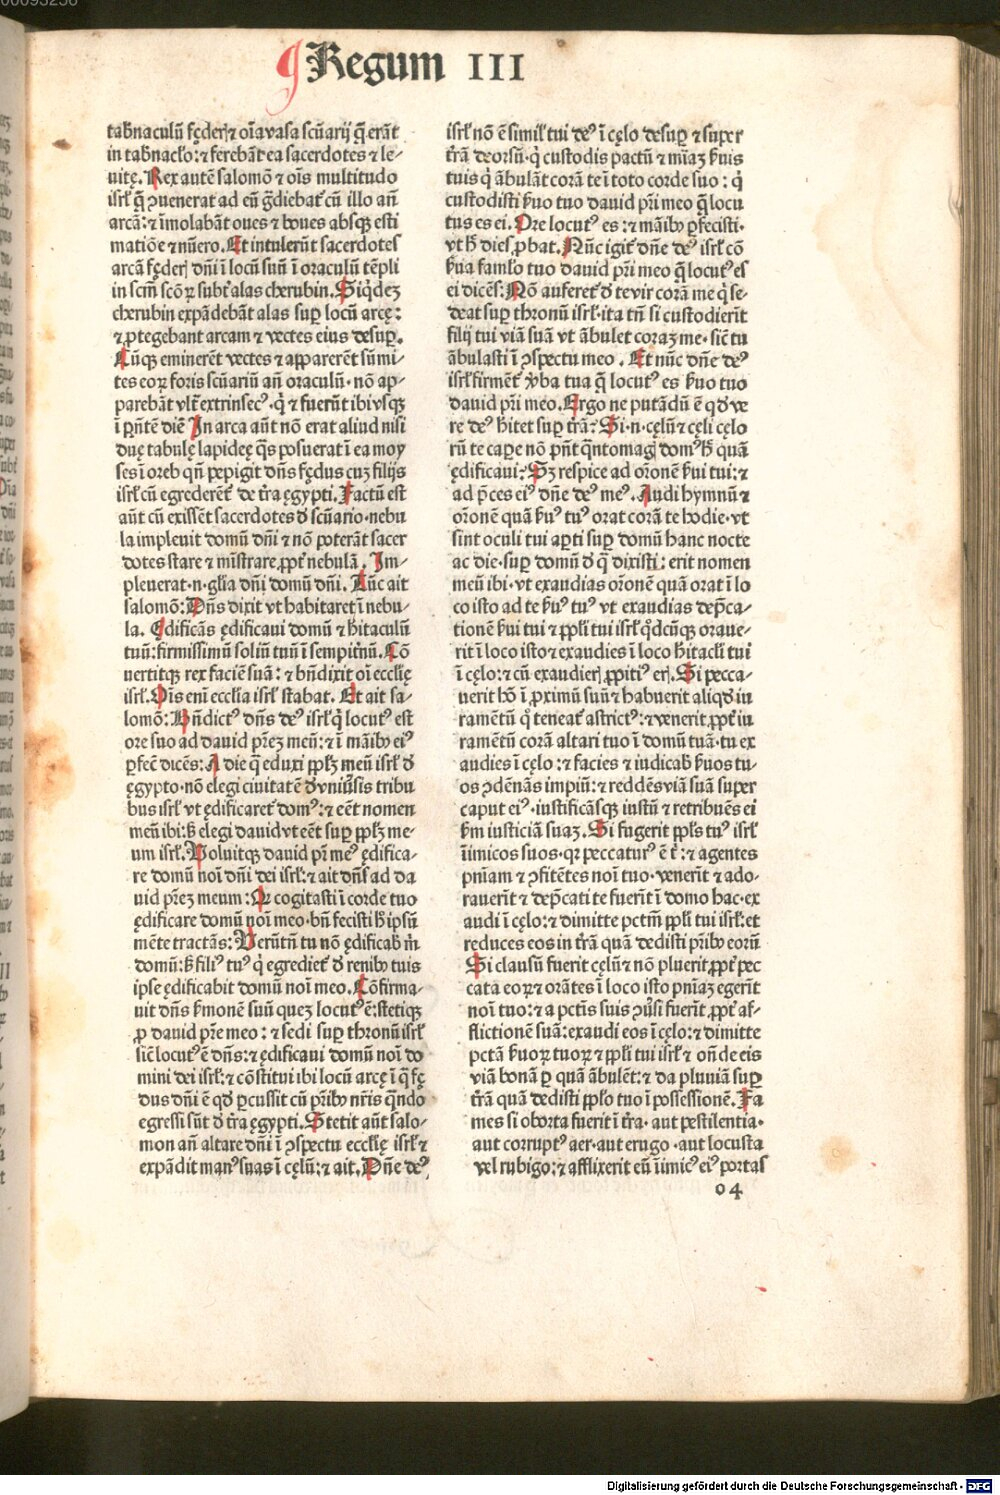 00093256
Regum III
tab̄naculū fęderꝭ ⁊ oīa vasa scūarij q̄ erāt
in tab̄nacło: ⁊ ferebāt ea sacerdotes ⁊ le-
vitę. Rex autē salomō ⁊ oīs multitudo
isrł q̄ ꝯuenerat ad eū g̃diebat̉ cū illo añ
arcā: ⁊ īmolabāt oues ⁊ boues absqꝫ esti
matiōe ⁊ nūero. Et intulerūt sacerdotes
arcā fęderꝭ dñi ī locū suū ī oraculū tēpli
in scm̄ scōꝝ subt̉ alas cherubin. Siq̇dez
cherubin expādebāt alas suꝑ locū arcę:
⁊ ꝓtegebant arcam ⁊ vectes eius desuꝑ.
Cūqꝫ eminerēt vectes ⁊ apparerēt sūmi-
tes eoꝝ foris scūariū añ oraculū· nō ap-
parebāt vlt̉ extrinsecꝰ· q̇ ⁊ fuerūt ibi vsqꝫ
ī pñtē diē In arca aūt nō erat aliud nisi
duę tabulę lapideę q̄s posuerat ī ea moy
ses ī oreb qñ pepigit dñs fędus cuz filijs
isrł cū egrederēt̉ de t̃ra ęgypti. Factū est
aūt cū exissēt sacerdotes d̄ scūario· nebu
la impleuit domū dñi ⁊ nō poterāt sacer
dotes stare ⁊ mīstrare ꝓpt̉ nebulā. Im-
pleuerat ·n· głia dñi domū dñi. Tūc ait
salomō: Dñs dixit vt habitaret ī nebu-
la. Ędificās ędificaui domū ⁊ hītaculū
tuū: firmissimū soliū tuū ī sempit̉nū. Cō
uertitqꝫ rex faciē suā: ⁊ bñdixit oī eccłię
isrł. Oīs enī eccłia isrł stabat. Et ait sa-
lomō: Bñdictꝰ dñs deꝰ isrł q̇ locutꝰ est
ore suo ad dauid p̄rez meū: ⁊ ī manibꝫ eiꝰ
ꝑfec̄ dicēs: A die q̄ eduxi ppłz meū isrł d̄
ęgypto· nō elegi ciuitatē d̄ vniuersis tribu
bus isrł vt ędificaret̉ domꝰ: ⁊ eēt nomen
meū ibi: sꝫ elegi dauid vt eēt suꝑ ppłz me-
um isrł. Voluitqꝫ dauid pr̄ meꝰ ędifica-
re domū noī dñi dei isrł: ⁊ ait dñs ad da
uid p̄rez meum: Qꝛ cogitasti ī corde tuo
ędificare domū noī meo· bñ fecisti h̄ ipsū
mēte tractās: Verūtñ tu nō ędificab̄ m̄
domū: sꝫ filiꝰ tuꝰ q̇ egrediet̉ d̄ renibꝫ tuis
ipse ędificabit domū noī meo. Cōfirma-
uit dñs s̄monē suū quez locutꝰ ē: stetiqꝫ
ꝓ dauid pr̄e meo: ⁊ sedi suꝑ thronū isrł
sic̄ locutꝰ ē dñs: ⁊ ędificaui domū noī do
mini dei isrł: ⁊ cōstitui ibi locū arcę ī q̄ fę
dus dñi ē qd̄ ꝑcussit cū p̄ribꝫ nr̄is qñdo
egressi sūt d̄ t̃ra ęgypti. Stetit aūt salo-
mon añ altare dñi ī ꝯspectu eccłię isrł ⁊
expādit manꝰ suas ī cęlū: ⁊ ait. Dñe deꝰ
isrł nō ē simił tui deꝰ ī cęlo desuꝑ ⁊ super
t̃rā deorsū· q̇ custodis pactū ⁊ mīaz s̄uis
tuis q̇ ābulāt corā te ī toto corde suo: q̇
custodisti s̄uo tuo dauid pr̄i meo q̄ locu
tus es ei. Ore locutꝰ es: ⁊ māibꝫ ꝑfecisti·
vt h̄ dies ꝓbat. Nūc igit̉ dñe deꝰ isrł cō
s̄ua famło tuo dauid pr̄i meo q̄ locutꝰ es
ei dicēs: Nō auferet̉ d̄ te vir corā me q̇ se-
deat suꝑ thronū isrł· ita tñ si custodierīt
filij tui viā suā vt ābulet coraz me· sic̄ tu
ābulasti ī ꝯspectu meo. Et nūc dñe deꝰ
isrł firmēt̉ v̄ba tua q̄ locutꝰ es s̄uo tuo
dauid pr̄i meo. Ergo ne putādū ē qd̄ ve
re deꝰ hītet suꝑ t̃rā: Si ·n· cęlū ⁊ cęli cęlo
rū te caꝑe nō pñt q̄ntomagꝭ domꝰ h̄ quā
ędificaui: Sꝫ respice ad or̄onē s̄ui tui: ⁊
ad p̄ces eiꝰ dñe deꝰ meꝰ. Audi hymnū ⁊
or̄onē quā s̄uꝰ tuꝰ orat corā te hodie· vt
sint oculi tui aꝑti suꝑ domū hanc nocte
ac die· suꝑ domū d̄ q̄ dixisti: erit nomen
meū ibi· vt exaudias or̄onē quā orat ī lo
co isto ad te s̄uꝰ tuꝰ vt exaudias dep̄ca-
tionē s̄ui tui ⁊ ppłi tui isrł q̇dcūqꝫ oraue-
rit ī loco isto ⁊ exaudies ī loco hītacłi tui
ī cęlo: ⁊ cū exaudierꝭ ꝓpitiꝰ erꝭ. Si pecca-
uerit hō ī ꝓximū suū ⁊ habuerit aliqd̄ iu
ramētū q̊ teneat̉ astrictꝰ: ⁊ venerit ꝓpt̉ iu
ramētū corā altari tuo ī domū tuā· tu ex
audies ī cęlo: ⁊ facies ⁊ iudicab̄ s̄uos tu-
os ꝯdēnās impiū: ⁊ reddēs viā suā super
caput eiꝰ· iustificāsqꝫ iustū ⁊ retribuēs ei
s̄m iusticiā suaz. Si fugerit ppłs tuꝰ isrł
īimicos suos· qꝛ peccaturꝰ ē t̄: ⁊ agentes
pñiam ⁊ ꝯfitētes noī tuo· venerīt ⁊ ado-
rauerīt ⁊ dep̄cati te fuerīt ī domo hac· ex
audi ī cęlo: ⁊ dimitte pctm̄ ppłi tui isrł: et
reduces eos in t̃rā quā dedisti p̄ribꝫ eorū
Si clausū fuerit cęlū ⁊ nō pluerit ꝓpt̉ pec
cata eoꝝ ⁊ orātes ī loco isto pñiaz egerīt
noī tuo: ⁊ a pctīs suis ꝯuersi fuerīt ꝓpt̉ af-
flictionē suā: exaudi eos ī cęlo: ⁊ dimitte
pctā s̄uoꝝ tuoꝝ ⁊ ppłi tui isrł ⁊ oñde eis
viā bonā ꝑ quā ābulēt: ⁊ da pluuiā suꝑ
t̃rā quā dedisti ppło tuo ī possessionē. Fa
mes si oborta fuerit ī t̃ra· aut pestilentia·
aut corruptꝰ aer· aut erugo· aut locusta
vel rubigo: ⁊ afflixerit eū īimicꝰ eiꝰ portas
o 4
Digitalisierung gefördert durch die Deutsche Forschungsgemeinschaft - DFG